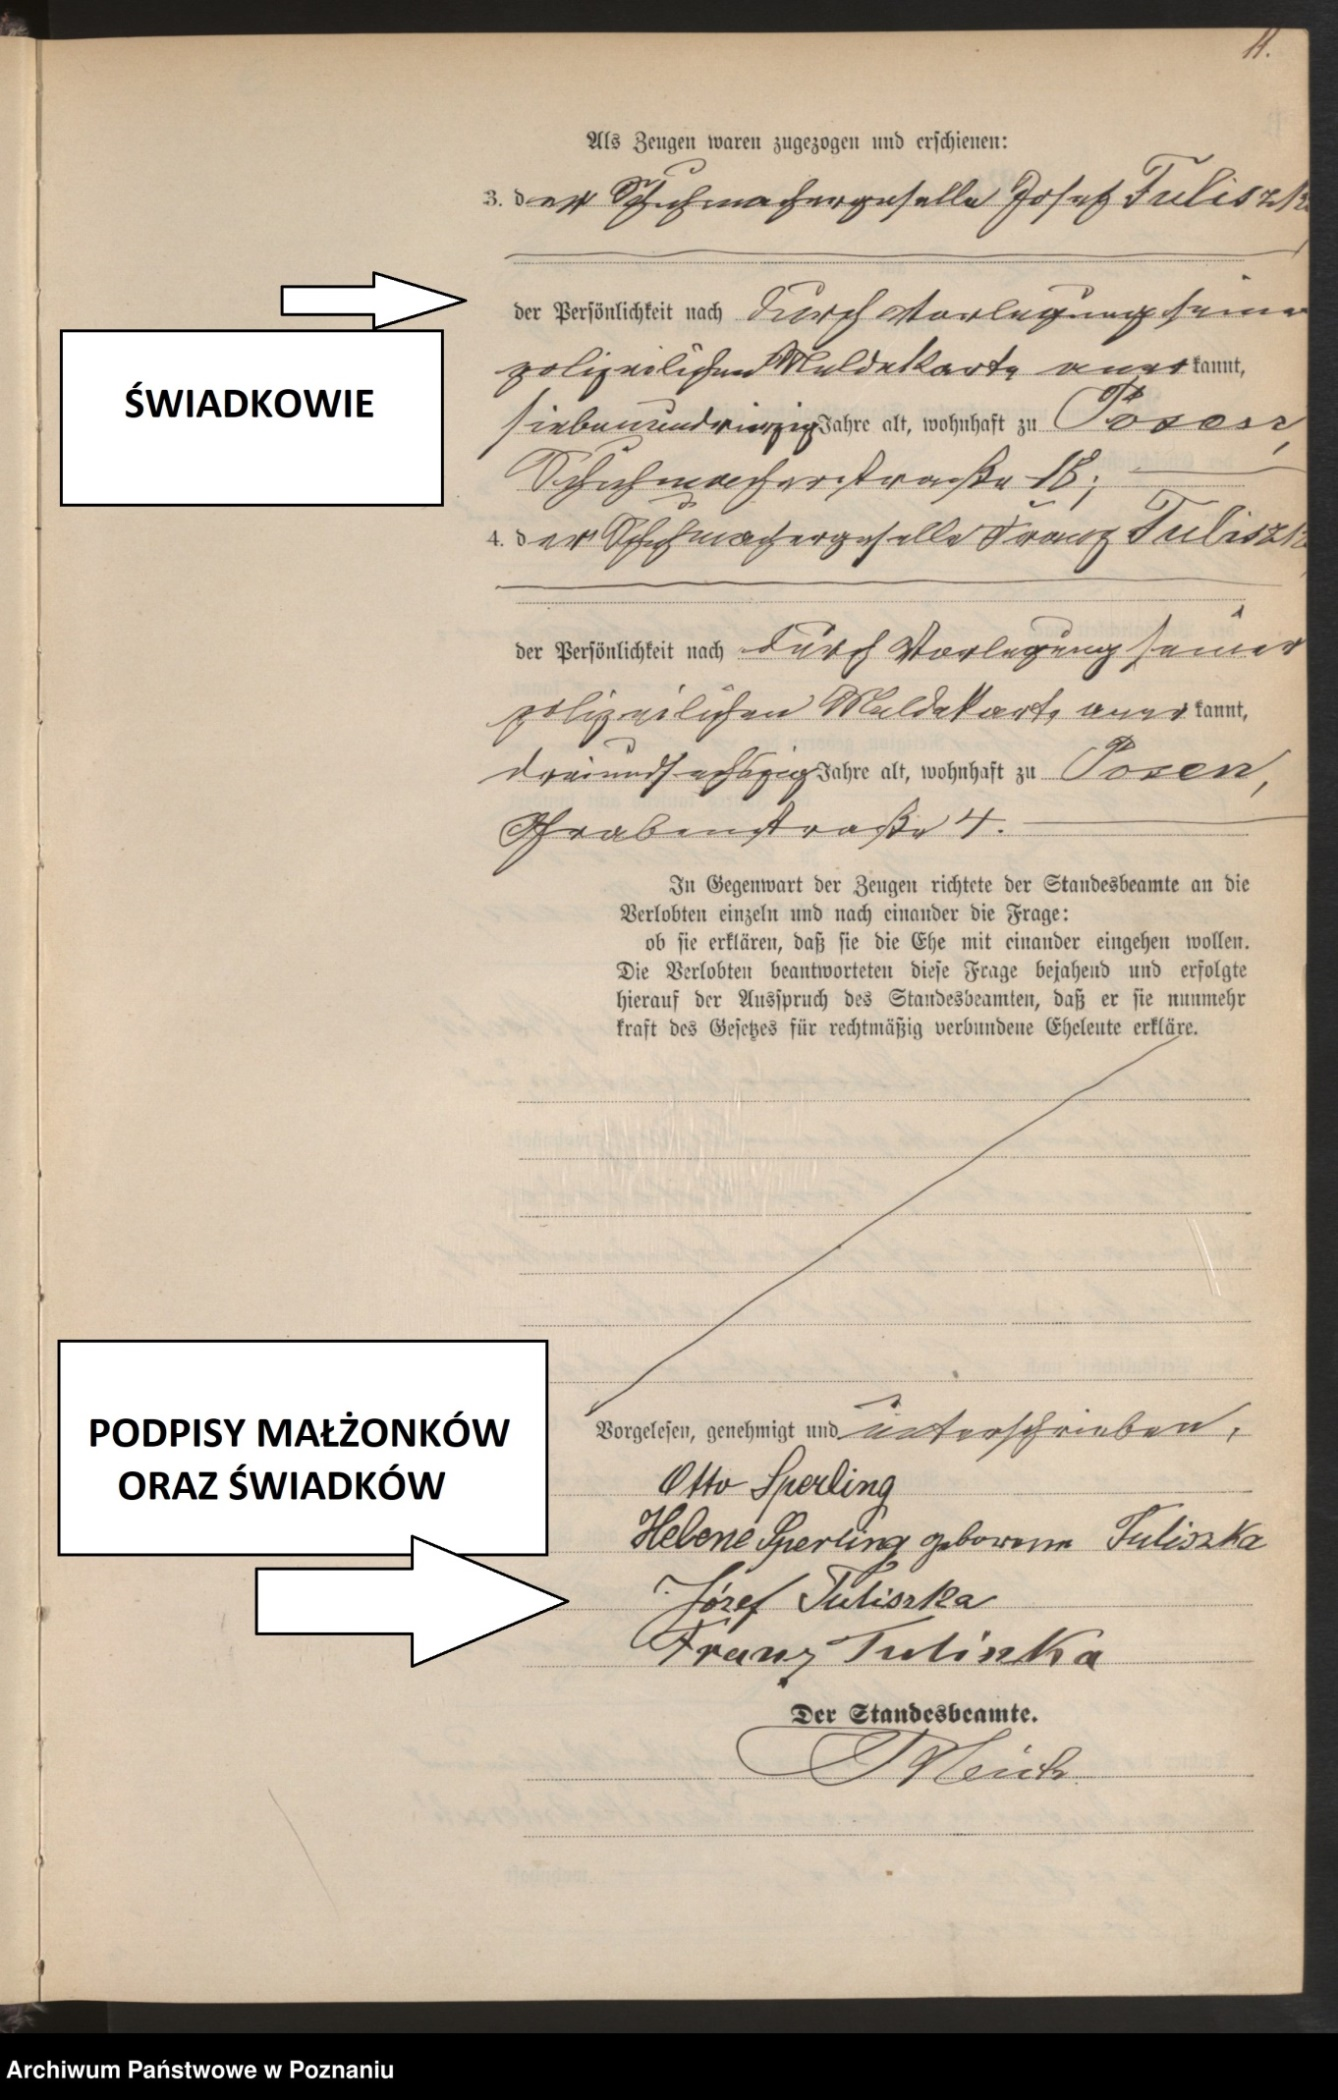 11.
Als Zeugen waren zugezogen und erschienen:
3. der Schuhmachergeselle Josef Tuliszka
der Persönlichkeit nach durch Vorlegung seiner
polizeilichen Meldekarte anerkannt,
siebenundvierzig Jahre alt, wohnhaft zu Posen,
Schuhmacherstraße 18;
4. der Schuhmachergeselle Franz Tuliszka
der Persönlichkeit nach durch Vorlegung seiner
polizeilichen Meldekarte anerkannt,
dreiundsechszig Jahre alt, wohnhaft zu Posen,
Grabenstraße 4.
ŚWIADKOWIE
In Gegenwart der Zeugen richtete der Standesbeamte an die
Verlobten einzeln und nach einander die Frage:
ob sie erklären, daß sie die Ehe mit einander eingehen wollen.
Die Verlobten beantworteten diese Frage bejahend und erfolgte
hierauf der Ausspruch des Standesbeamten, daß er sie nunmehr
kraft des Gesetzes für rechtmäßig verbundene Eheleute erkläre.
PODPISY MAŁŻONKÓW
ORAZ ŚWIADKÓW
Vorgelesen, genehmigt und unterschrieben.
Otto Sperling
Helene Sperling geborene Tuliszka
Józef Tuliszka
Franz Tuliszka
Der Standesbeamte.
Archiwum Państwowe w Poznaniu